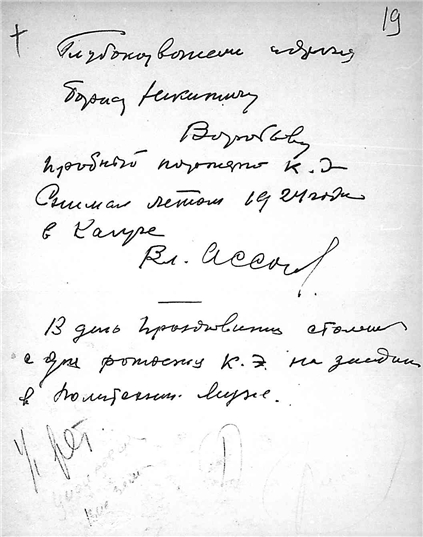 19
Глубокоуважаемому
Борису Никитичу
Воробьеву
пробный портрет К.Э.
Снимал летом 1924 года
в Калуге
Вл. Ассонов
В день празднования столетия
с дня рождения К.Э. на заседании
в Политехн. Музее.